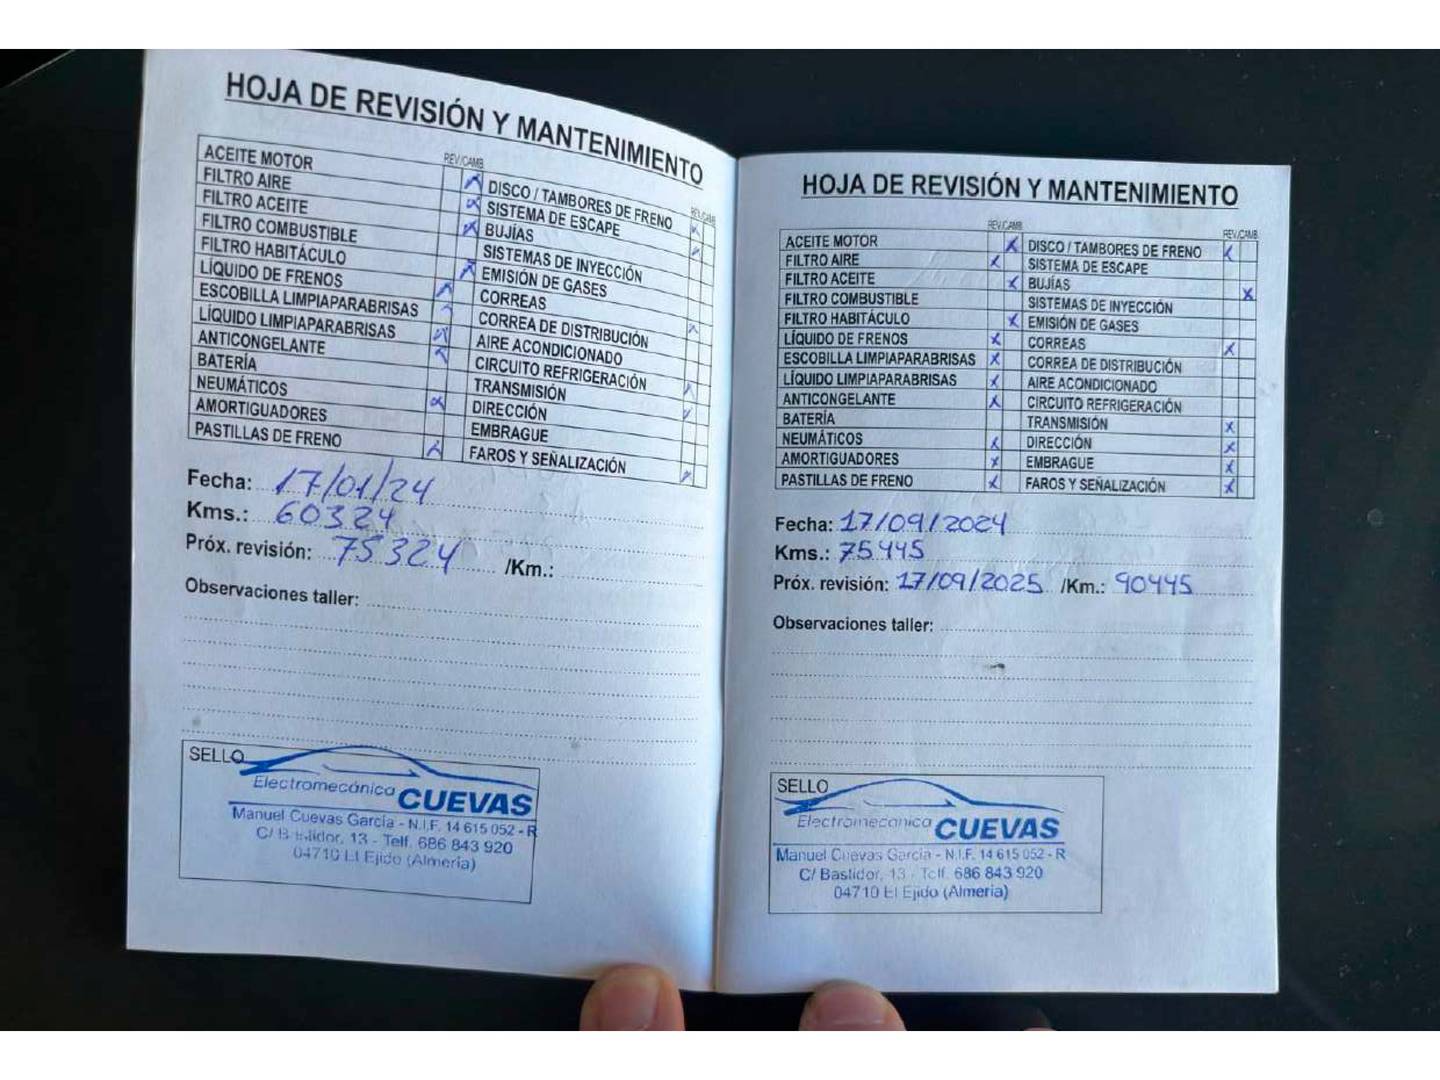 HOJA DE REVISIÓN Y MANTENIMIENTO
REV./CAMB.
ACEITE MOTOR
FILTRO AIRE
FILTRO ACEITE
FILTRO COMBUSTIBLE
FILTRO HABITÁCULO
LÍQUIDO DE FRENOS
ESCOBILLA LIMPIAPARABRISAS
LÍQUIDO LIMPIAPARABRISAS
ANTICONGELANTE
BATERÍA
NEUMÁTICOS
AMORTIGUADORES
PASTILLAS DE FRENO
REV./CAMB.
DISCO / TAMBORES DE FRENO
SISTEMA DE ESCAPE
BUJÍAS
SISTEMAS DE INYECCIÓN
EMISIÓN DE GASES
CORREAS
CORREA DE DISTRIBUCIÓN
AIRE ACONDICIONADO
CIRCUITO REFRIGERACIÓN
TRANSMISIÓN
DIRECCIÓN
EMBRAGUE
FAROS Y SEÑALIZACIÓN
Fecha: 17/01/24
Kms.: 60324
Próx. revisión: 75324 /Km.:
Observaciones taller:
SELLO
Electromecánica CUEVAS
Manuel Cuevas García - N.I.F. 14 615 052 - R
C/ Bastidor, 13 - Telf. 686 843 920
04710 El Ejido (Almería)
HOJA DE REVISIÓN Y MANTENIMIENTO
REV./CAMB.
ACEITE MOTOR
FILTRO AIRE
FILTRO ACEITE
FILTRO COMBUSTIBLE
FILTRO HABITÁCULO
LÍQUIDO DE FRENOS
ESCOBILLA LIMPIAPARABRISAS
LÍQUIDO LIMPIAPARABRISAS
ANTICONGELANTE
BATERÍA
NEUMÁTICOS
AMORTIGUADORES
PASTILLAS DE FRENO
REV./CAMB.
DISCO / TAMBORES DE FRENO
SISTEMA DE ESCAPE
BUJÍAS
SISTEMAS DE INYECCIÓN
EMISIÓN DE GASES
CORREAS
CORREA DE DISTRIBUCIÓN
AIRE ACONDICIONADO
CIRCUITO REFRIGERACIÓN
TRANSMISIÓN
DIRECCIÓN
EMBRAGUE
FAROS Y SEÑALIZACIÓN
Fecha: 17/09/2024
Kms.: 75445
Próx. revisión: 17/09/2025 /Km.: 90445
Observaciones taller:
SELLO
Electromecánica CUEVAS
Manuel Cuevas García - N.I.F. 14 615 052 - R
C/ Bastidor, 13 - Telf. 686 843 920
04710 El Ejido (Almería)